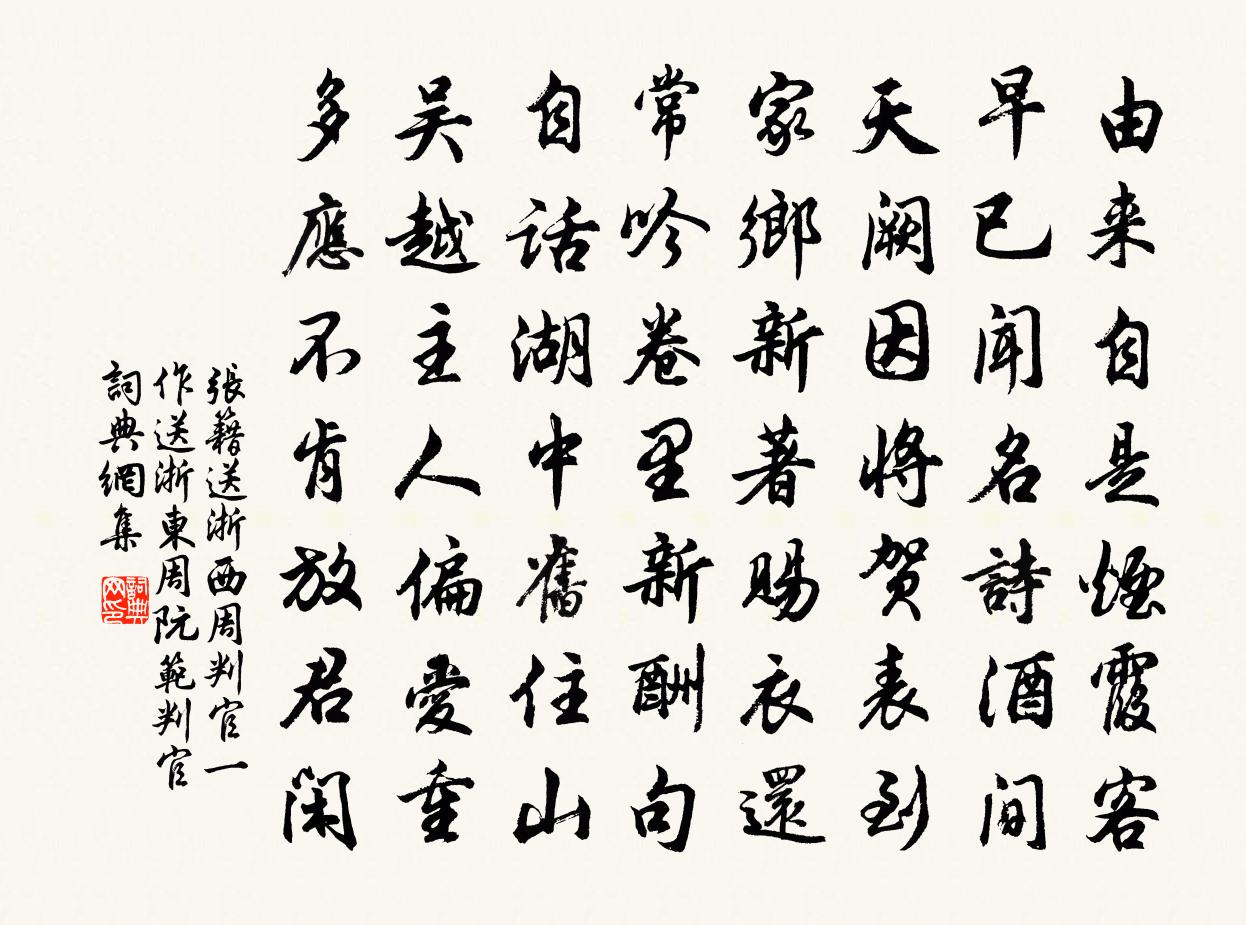 由来自是煙霞客
早已聞名詩酒間
天闕因將贺表到
家鄉新著賜衣還
常吟卷里新酬句
自話湖中舊住山
吴越主人偏愛重
多應不肯放君閑
張籍送浙西周判官一
作送浙東周阮範判官
詞典網集
詞典網印